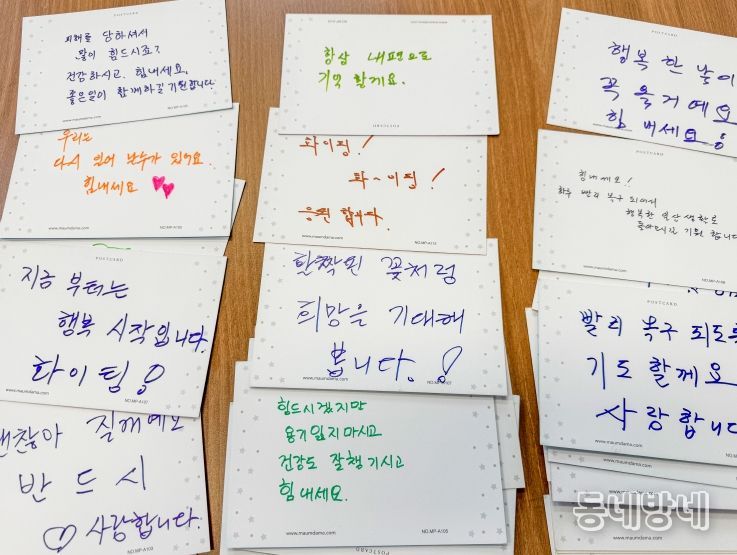 피해를 당하셔서
많이 힘드시죠?
건강하시고. 힘내세요.
좋은일이 함께하길 기원합니다.
NO.MP-A107
우리는
다시 일어 날수가 있어요.
힘내세요
www.maumdama.com
NO.MP-A10
POSTCARD
지금 부터는
행복 시작입니다.
화이팅!
www.maumdama.com
NO.MP-A107
괜찮아 질거예요
반드시
사랑합니다.
www.maumdama.com
NO.MP-A103
www.maumdama.com
항상 내편으로
기억 할게요.
POSTCARD
화이팅!
화~이팅!
응원 합니다.
www.maumdama.com
NO.MP-A110
활짝핀 꽃처럼
희망을 기대해
봅니다.!
www.maumdama.com
NO.MP-A107
힘드시겠지만
용기잃지마시고
건강도 잘챙기시고
힘내세요.
www.maumdama.com
NO.MP-A105
POSTCARD
POSTCARD
행복 한 날이
꼭 올거예요
힘 내세요!
POSTCARD
힘내세요!!
하루 빨리 복구 되어서
행복한 일상생활로
돌아오시길 기원 합니다
www.maumdama.com
NO.MP-A108
POSTCARD
빨리 복구 되도록
기도 할께요
사랑합니다
동네방네